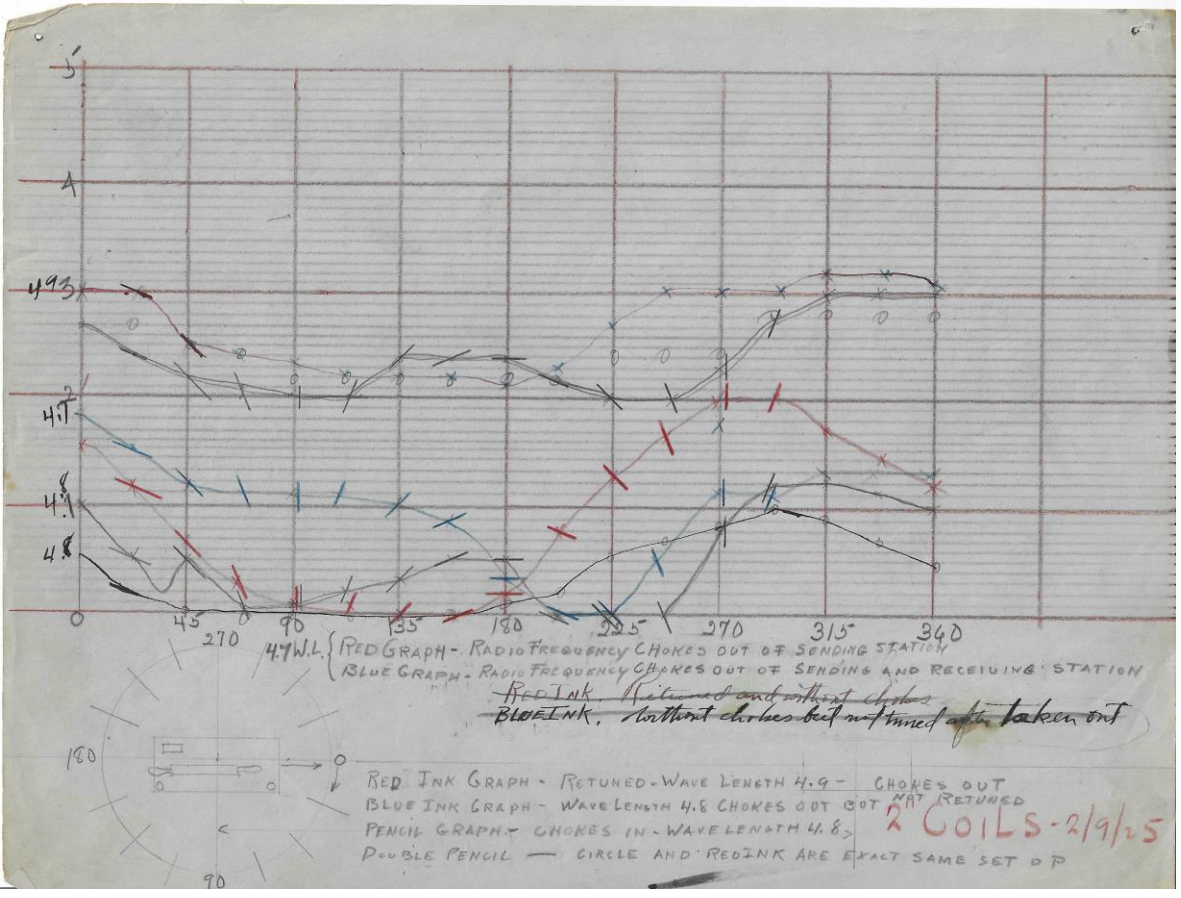 5
4
4.9 3
2
4.7
.8
4.1
4.8
0 45 90 135 180 225 270 315 340
270
4.7 W.L. { RED GRAPH - RADIO FREQUENCY CHOKES OUT OF SENDING STATION
BLUE GRAPH - RADIO FREQUENCY CHOKES OUT OF SENDING AND RECEIVING STATION
RED INK Retuned and without chokes
BLUE INK. Without chokes but not tuned after taken out
180
0
RED INK GRAPH - RETUNED - WAVE LENGTH 4.9 - CHOKES OUT
BLUE INK GRAPH - WAVE LENGTH 4.8 CHOKES OUT BUT NOT RETUNED
PENCIL GRAPH - CHOKES IN - WAVE LENGTH 4.8
2 COILS - 2/9/25
DOUBLE PENCIL — CIRCLE AND RED INK ARE EXACT SAME SET UP
90